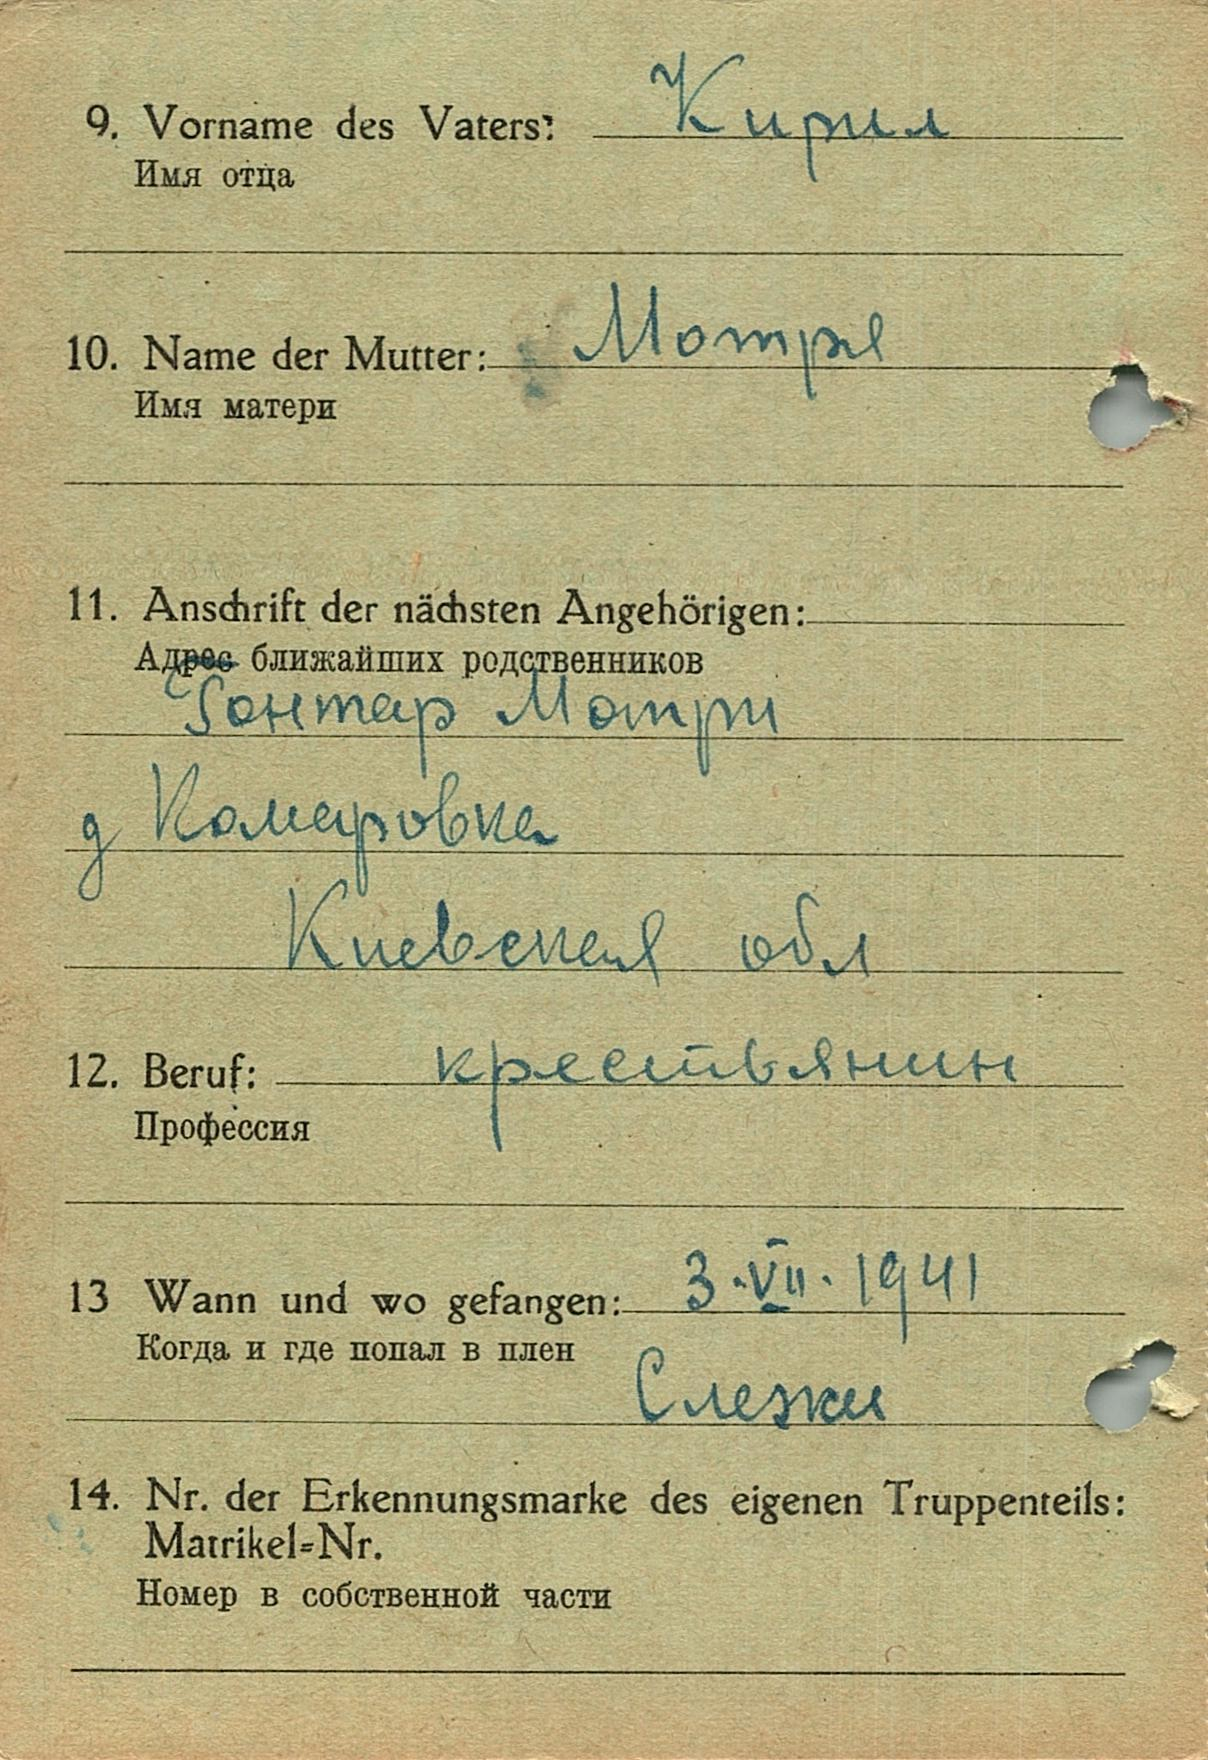 9. Vorname des Vaters: Кирил
Имя отца
10. Name der Mutter: Мотря
Имя матери
11. Anschrift der nächsten Angehörigen:
Адрес ближайших родственников
Гонтар Мотри
д Комаровка
Киевская обл
12. Beruf: крестьянин
Профессия
13 Wann und wo gefangen: 3·VII·1941
Когда и где попал в плен
14. Nr. der Erkennungsmarke des eigenen Truppenteils:
Matrikel-Nr.
Номер в собственной части